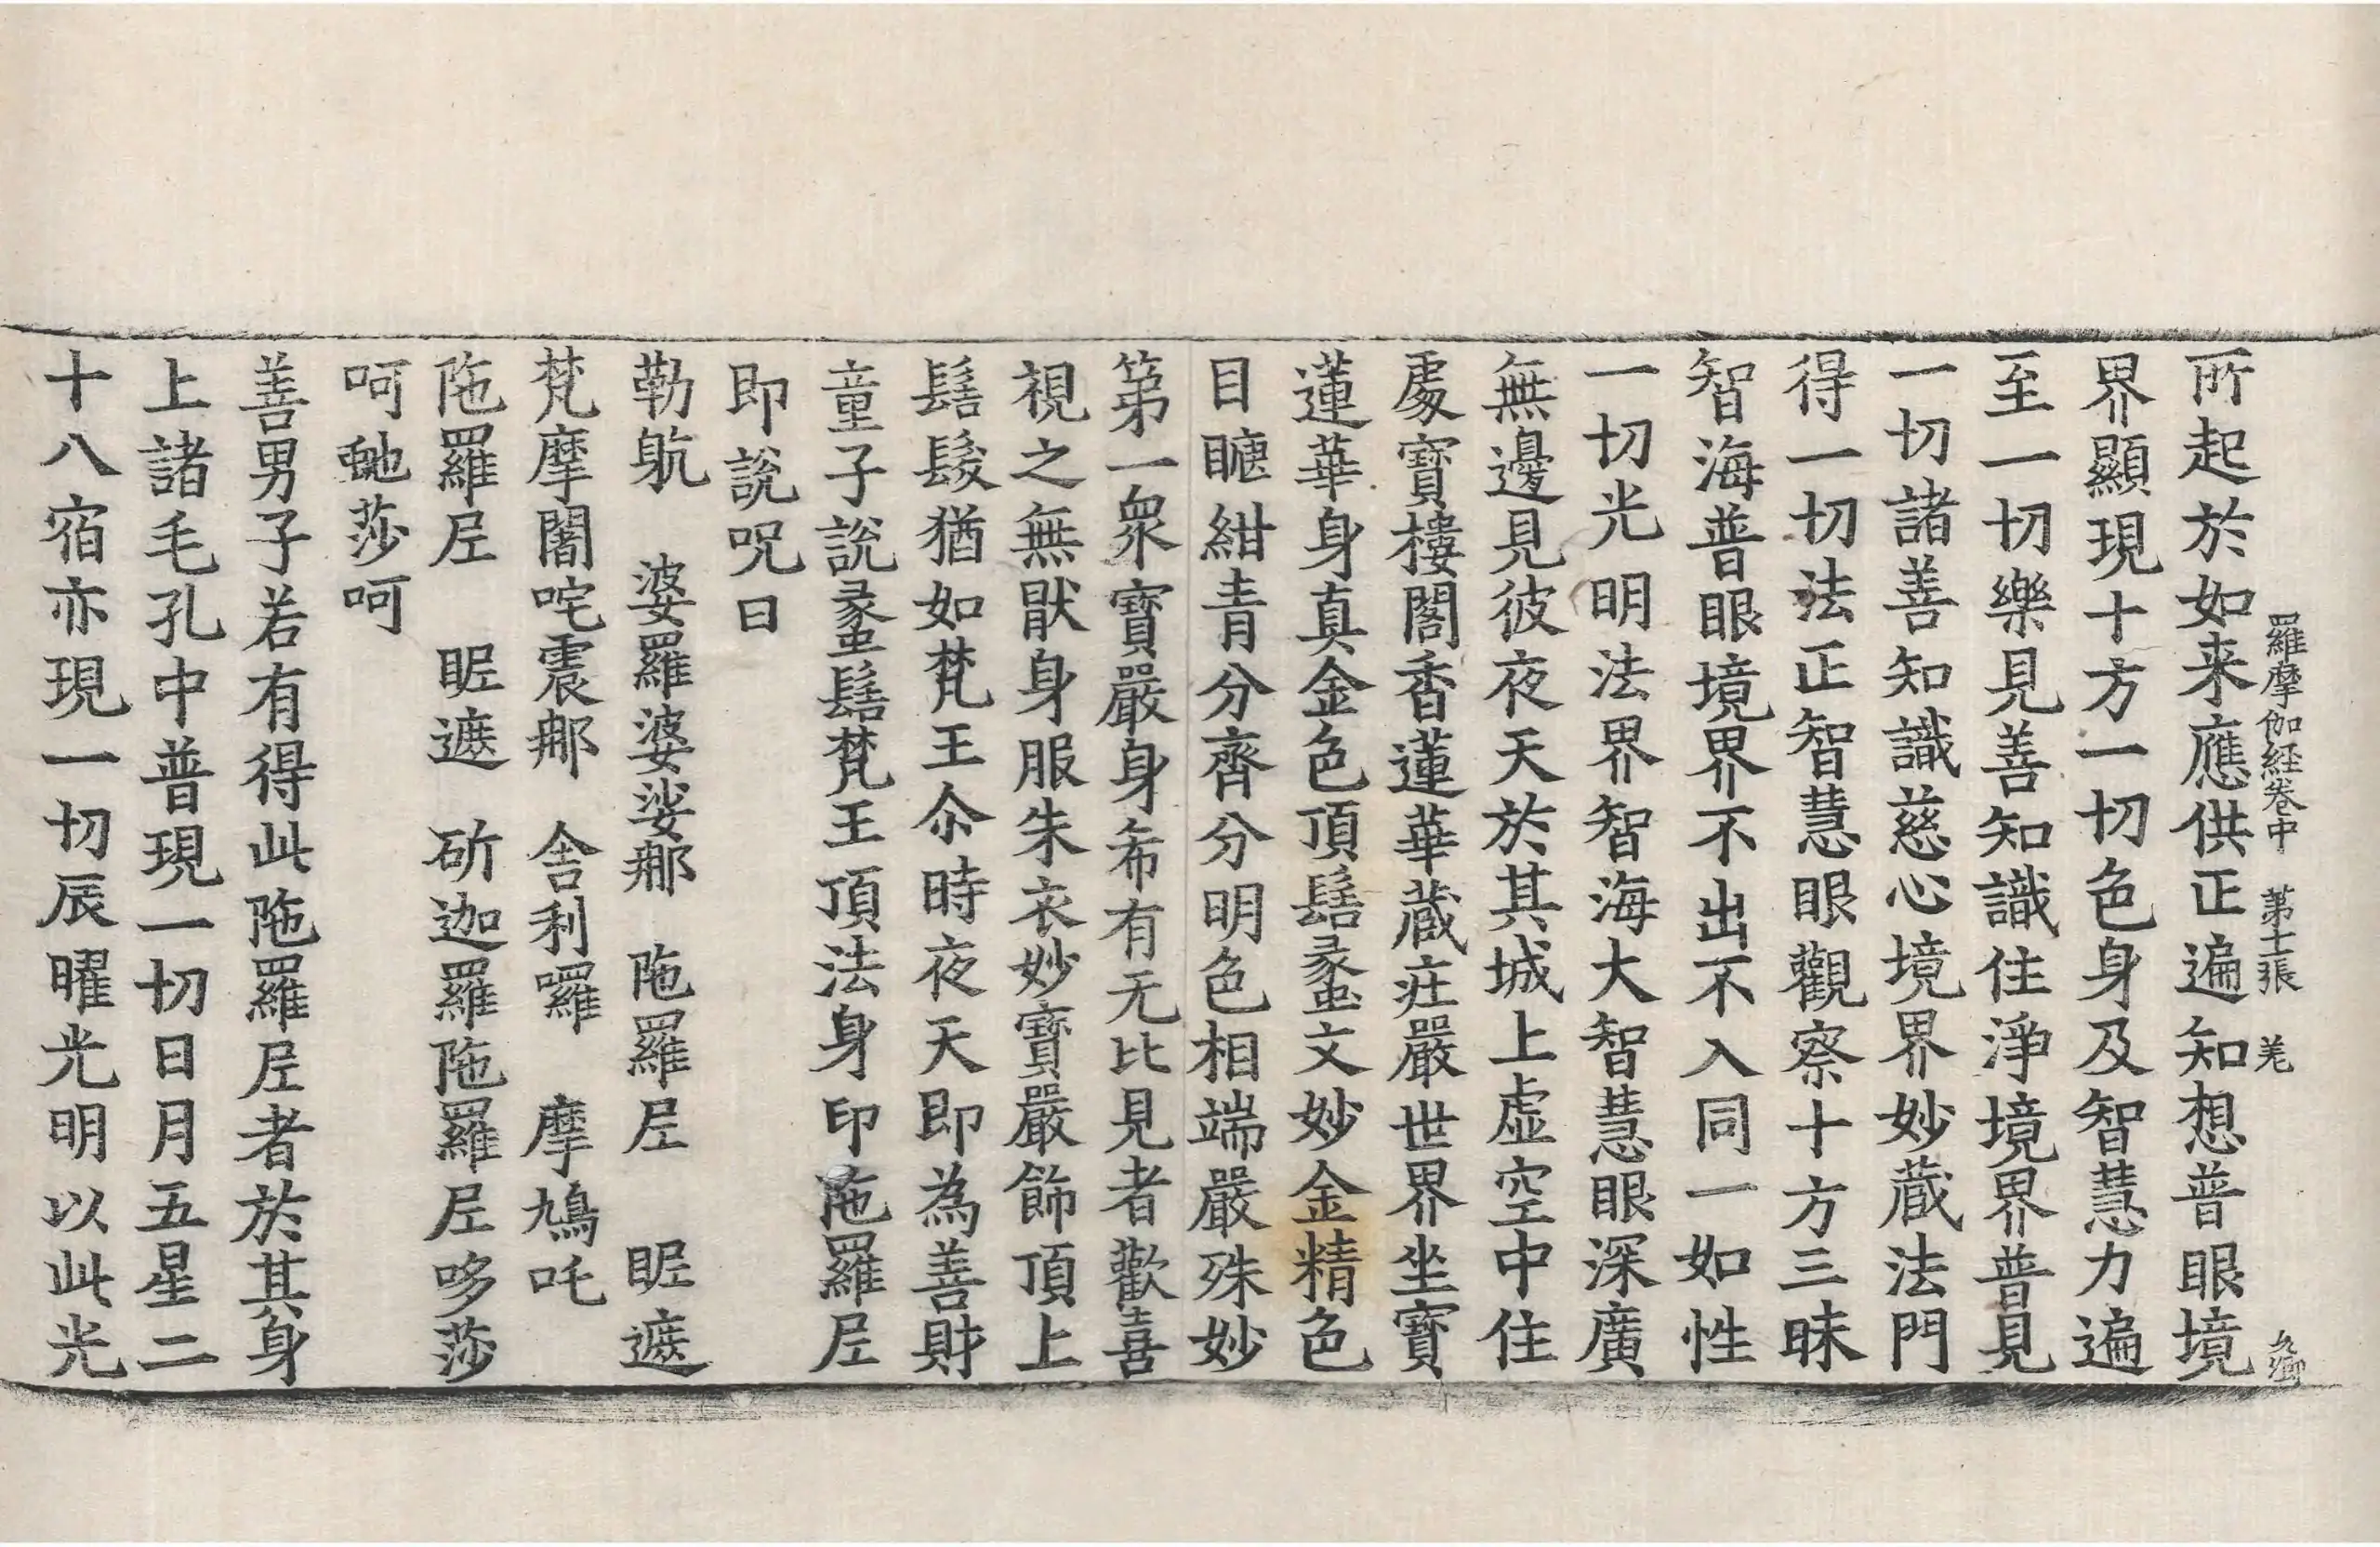 羅摩伽経卷中 第十二張 羌
所起於如来應供正遍知想普眼境
界顯現十方一切色身及智慧力遍
至一切樂見善知識住淨境界普見
一切諸善知識慈心境界妙蔵法門
得一切法正智慧眼觀察十方三昧
智海普眼境界不出不入同一如性
一切光明法界智海大智慧眼深廣
無邊見彼夜天於其城上虚空中住
處寶樓閣香蓮華蔵莊嚴世界坐寶
蓮華身真金色頂髻蠡文妙金精色
目睫紺青分齊分明色相端嚴殊妙
第一衆寶嚴身希有无比見者歡喜
視之無猒身服朱衣妙寶嚴飾頂上
髻髮猶如梵王尒時夜天即為善財
童子說蠡髻梵王頂法身印陁羅尼
即說呪曰
勒㪍 婆羅婆娑𨚗 陁羅尼 眤遮
梵摩闍咤震𨚗 舎利囉 摩鳩吒
陁羅尼 眤遮 斫迦羅陁羅尼哆莎
呵虵莎呵
善男子若有得此陁羅尼者於其身
上諸毛孔中普現一切日月五星二
十八宿亦現一切辰曜光明以此光